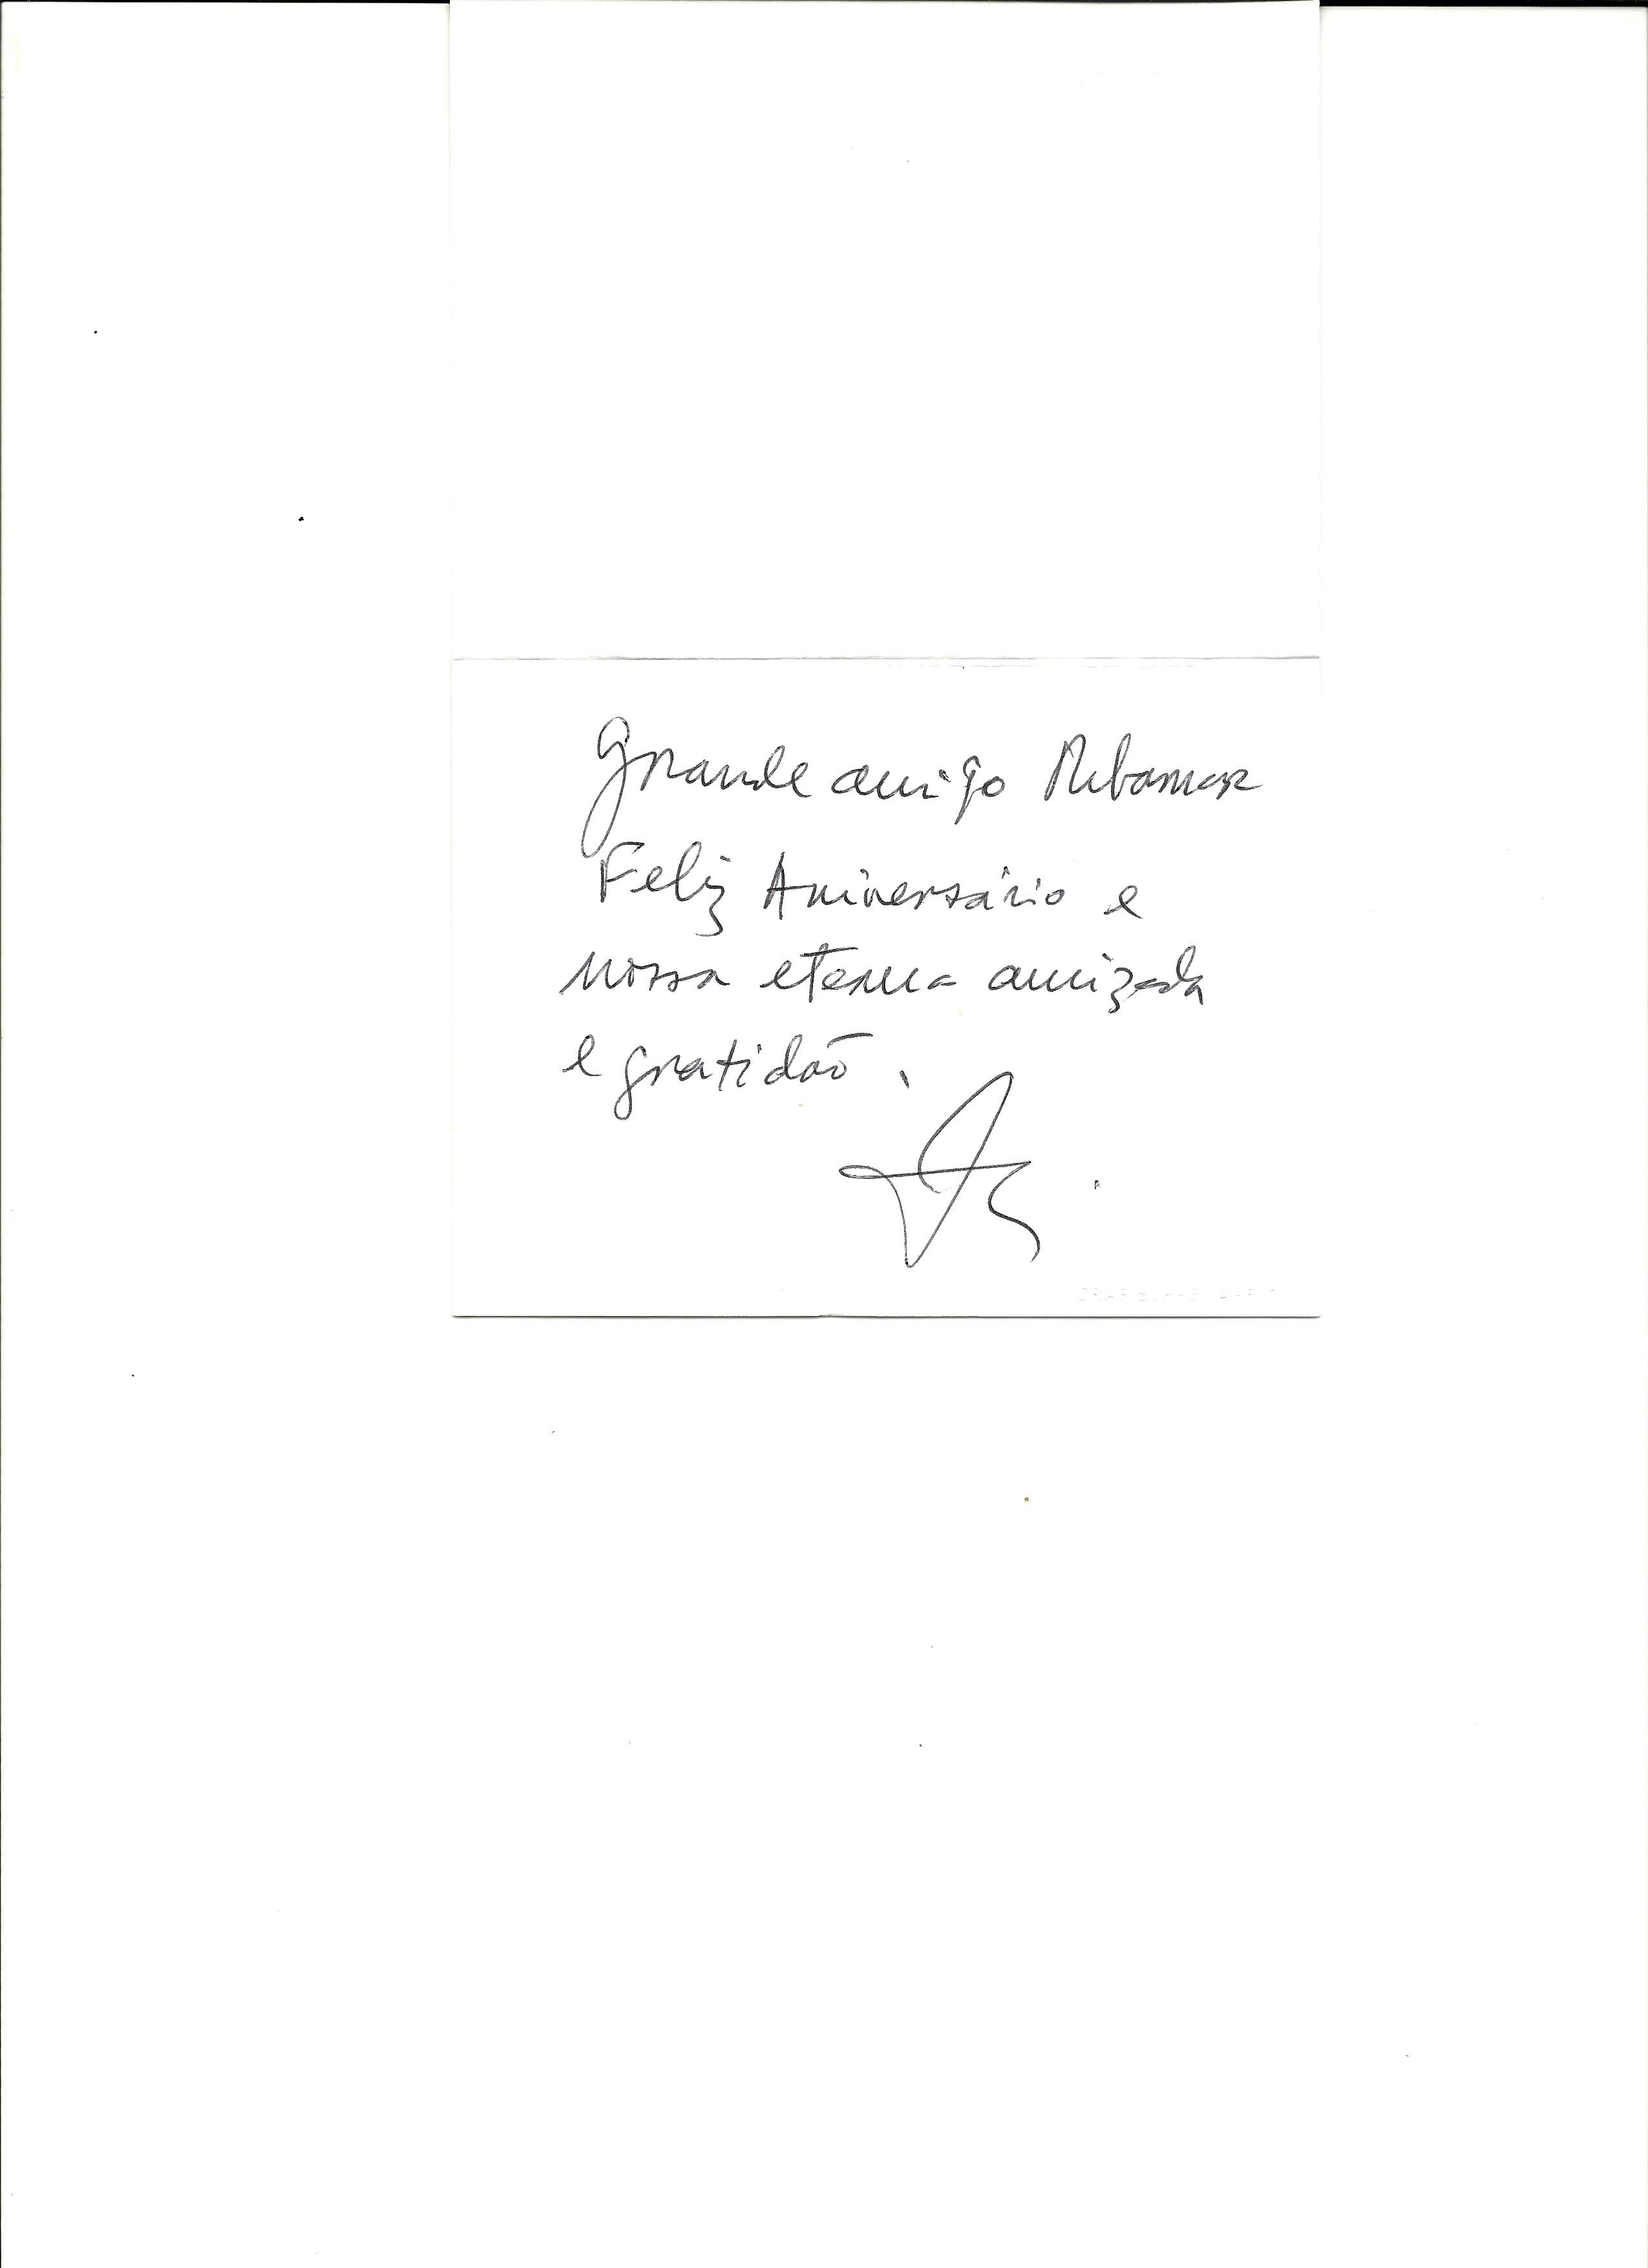 Grande amigo Ribamar
Feliz Aniversário e
nossa eterna amizade
e gratidão.